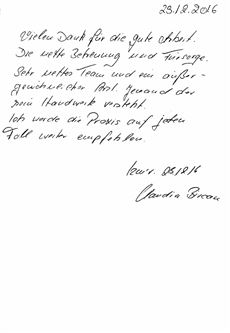 23.12.2016
Vielen Dank für die gute Arbeit.
Die nette Betreuung und Fürsorge.
Sehr nettes Team und ein außer-
gewöhnlicher Arzt. jemand der
sein Handwerk versteht.
Ich werde die Praxis auf jeden
Fall weiter empfehlen.
Izmir. 23.12.16
Claudia